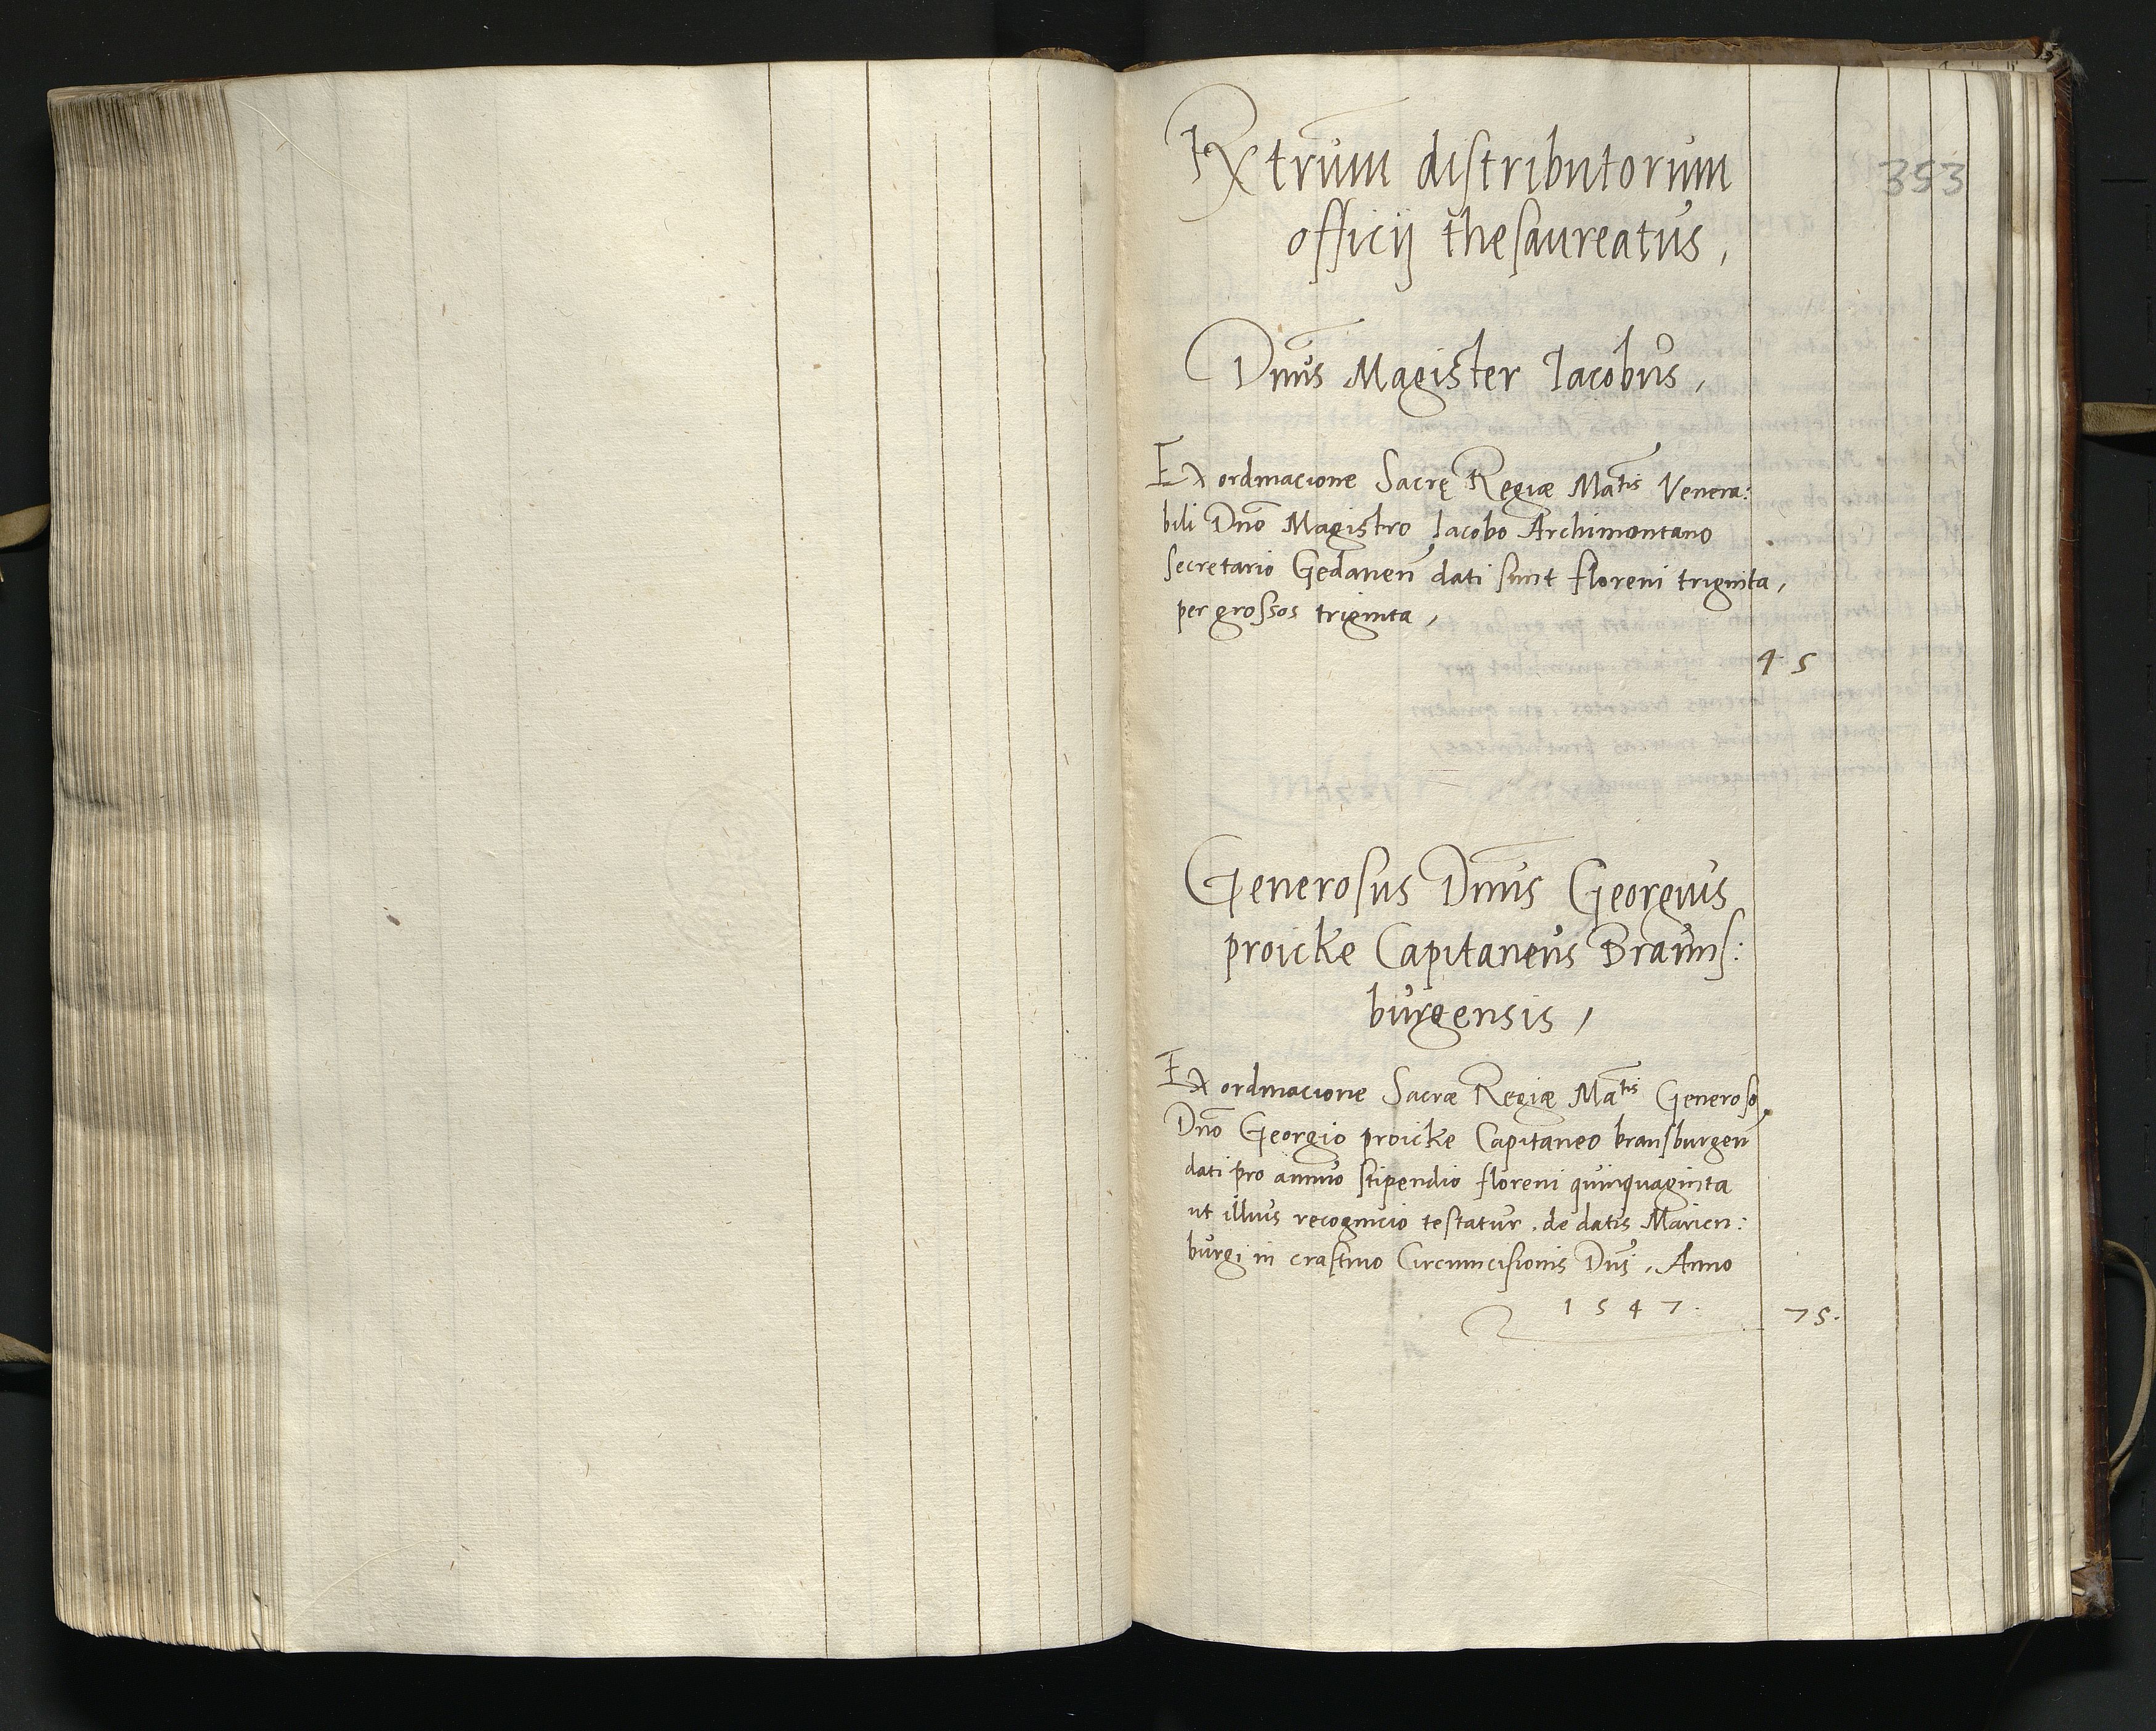 353
Extrum distributorum
officij thesaureatus,
Dnus Magister Iacobus,
Ex ordinacione Sacrę Regiæ Matis Venera:
bili Dno Magistro Iacobo Archimontano
secretario Gedanen dati sunt floreni triginta,
per grossos triginta,
45
Generosus Dnus Georgius
proicke Capitaneus Brauns:
burgensis,
Ex ordinacione Sacræ Regiæ Matis Generoso
Dno Georgio proicke Capitaneo bransburgen
dati pro annuo stipendio floreni quinquaginta
ut illius recognicio testatur, de datis Marien:
burgi in crastino Circumcisionis Dni, Anno
1547.
75.